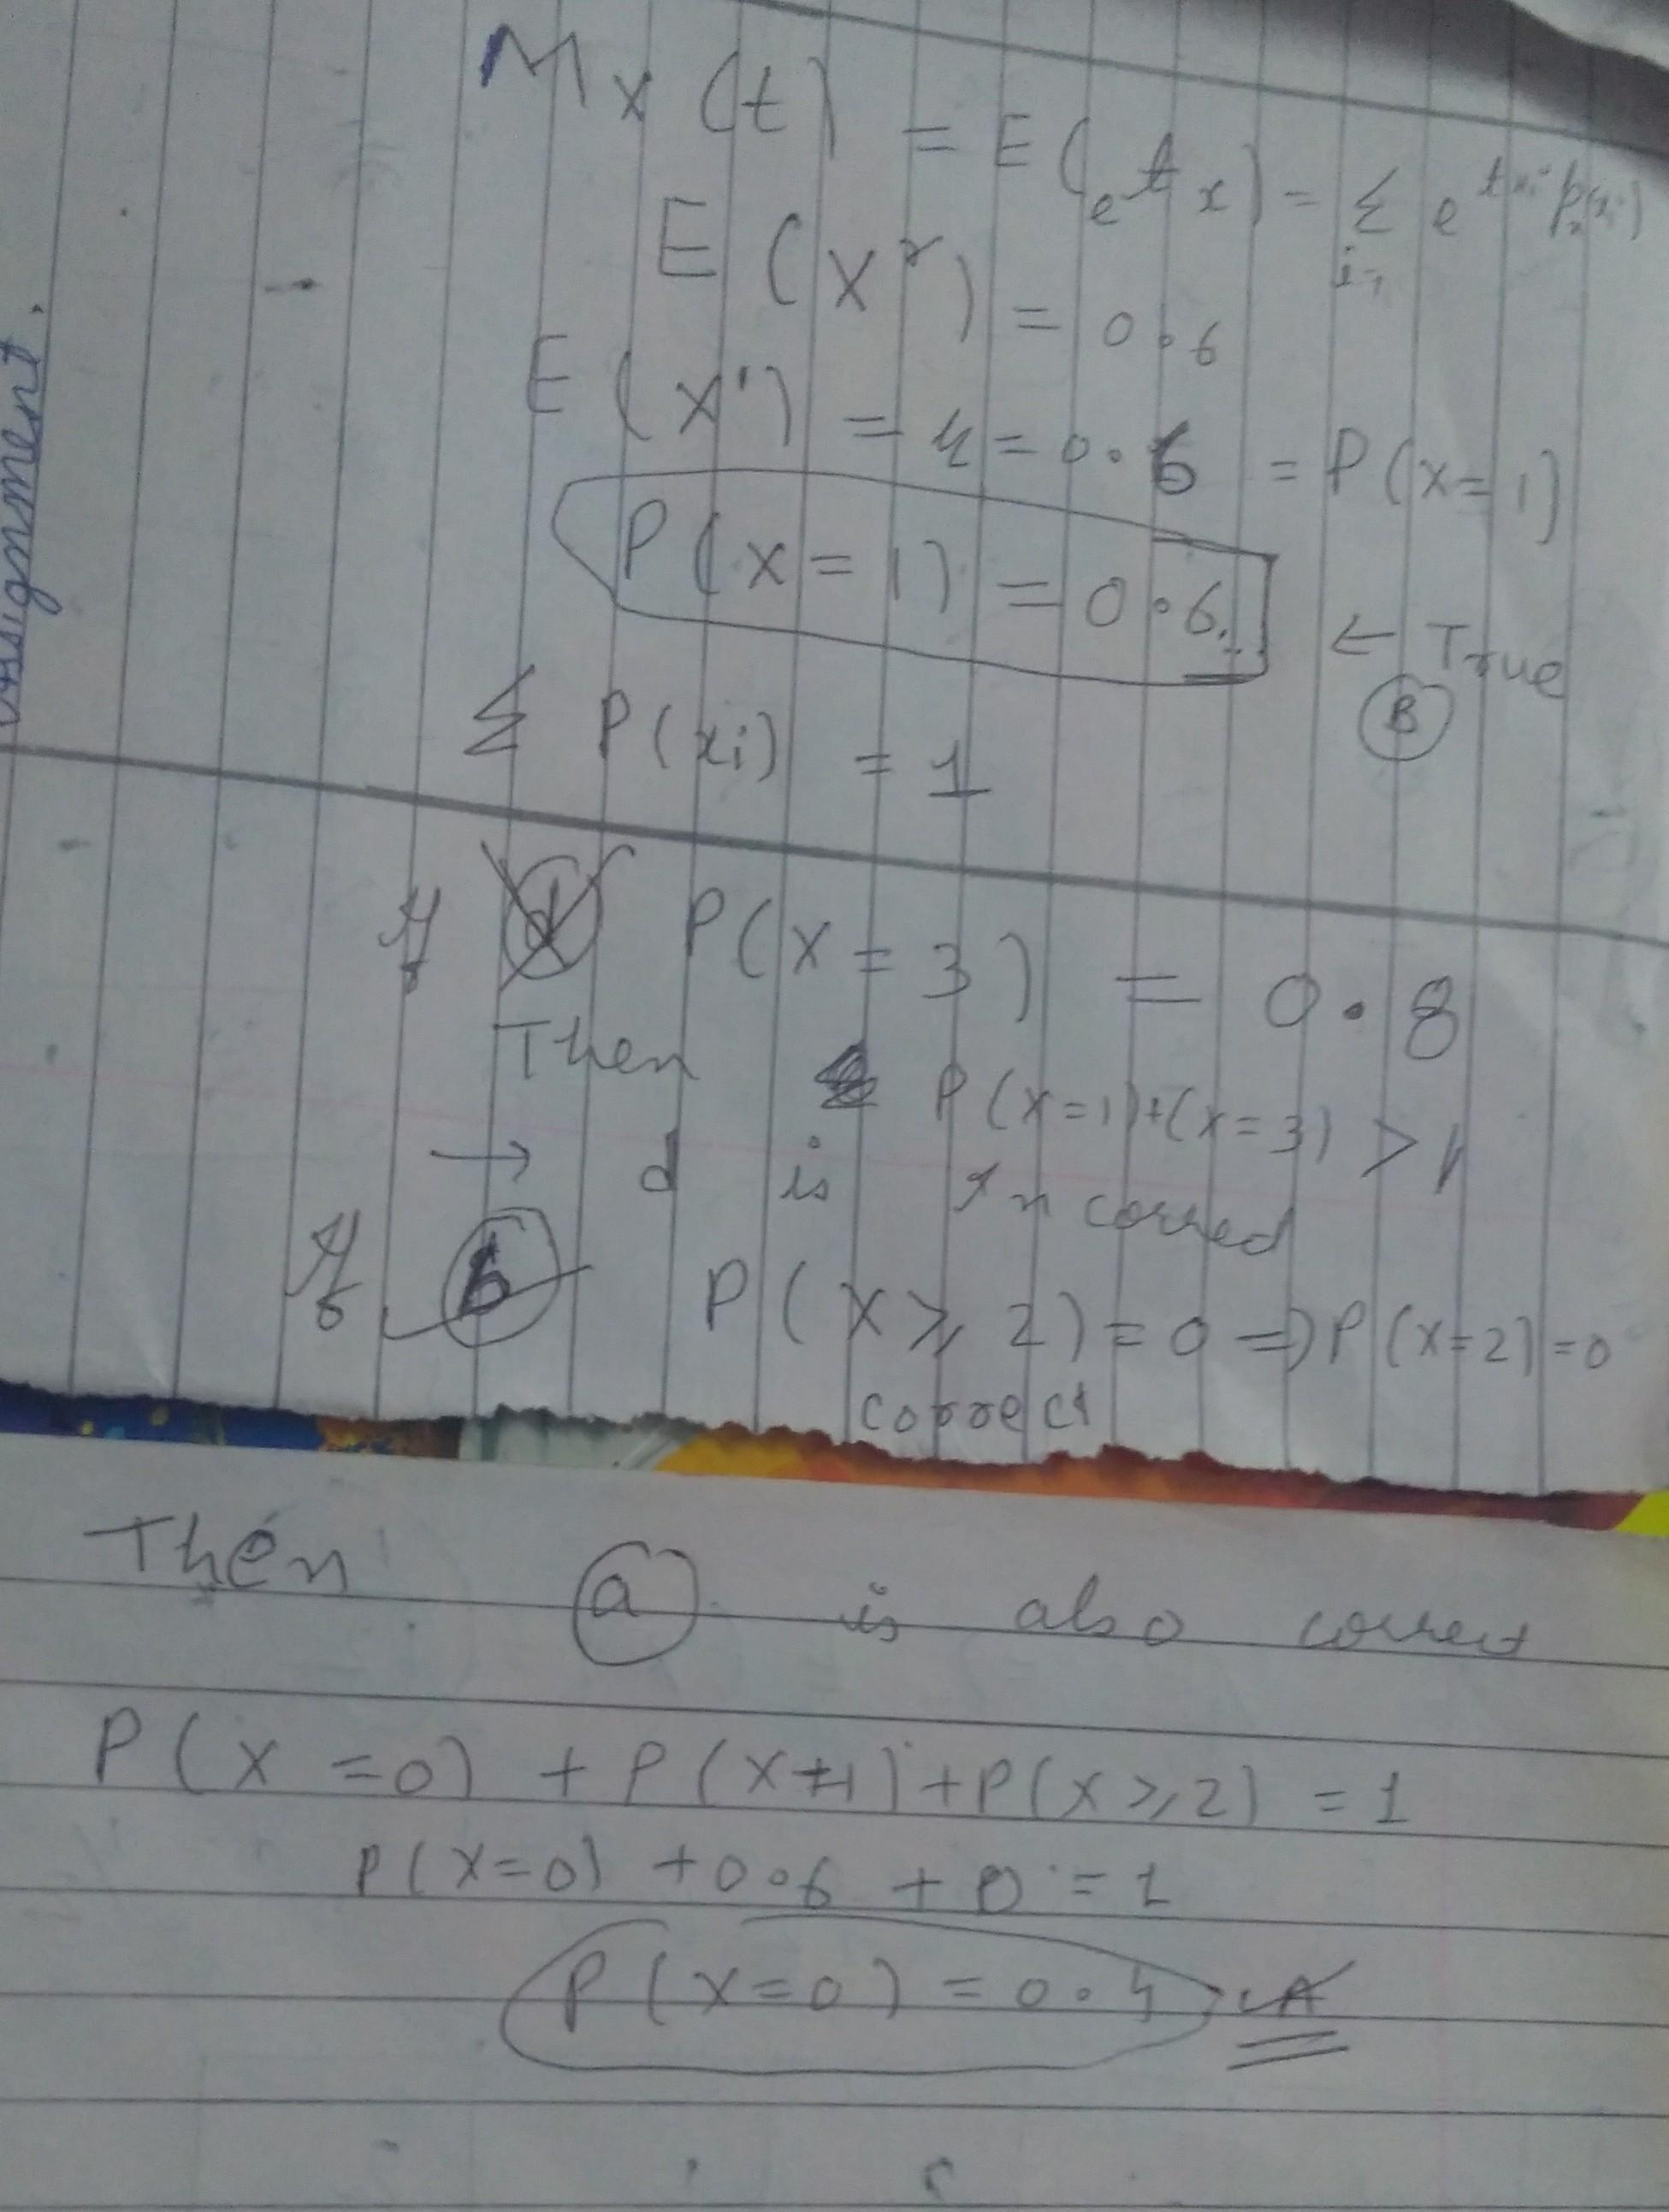 Assignment.
M_X(t) = E(e^{tx}) = Σ_{i=1} e^{txi} p_x(xi)
E(X^r) = 0.6
E(X') = μ = 0.6 = P(x=1)
P(x=1) = 0.6
← True
B
Σ P(xi) = 1
If d P(x=3) = 0.8
Then P(x=1)+(x=3) > 1
→ d is Incorrect
If b P(x≥2)=0 ⇒ P(x=2)=0
correct
Then a is also correct
P(x=0) + P(x=1) + P(x≥2) = 1
P(x=0) + 0.6 + 0 = 1
P(x=0) = 0.4 A